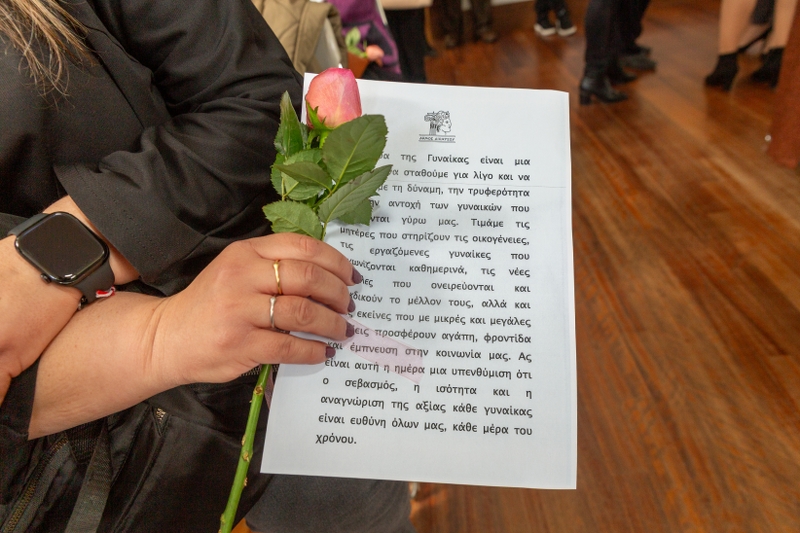 της Γυναίκας είναι μια
σταθούμε για λίγο και να
με τη δύναμη, την τρυφερότητα
αντοχή των γυναικών που
γύρω μας. Τιμάμε τις
μητέρες που στηρίζουν τις οικογένειες,
τις εργαζόμενες γυναίκες που
καθημερινά, τις νέες
που ονειρεύονται και
το μέλλον τους, αλλά και
εκείνες που με μικρές και μεγάλες
προσφέρουν αγάπη, φροντίδα
και έμπνευση στην κοινωνία μας. Ας
είναι αυτή η ημέρα μια υπενθύμιση ότι
ο σεβασμός, η ισότητα και η
αναγνώριση της αξίας κάθε γυναίκας
είναι ευθύνη όλων μας, κάθε μέρα του
χρόνου.